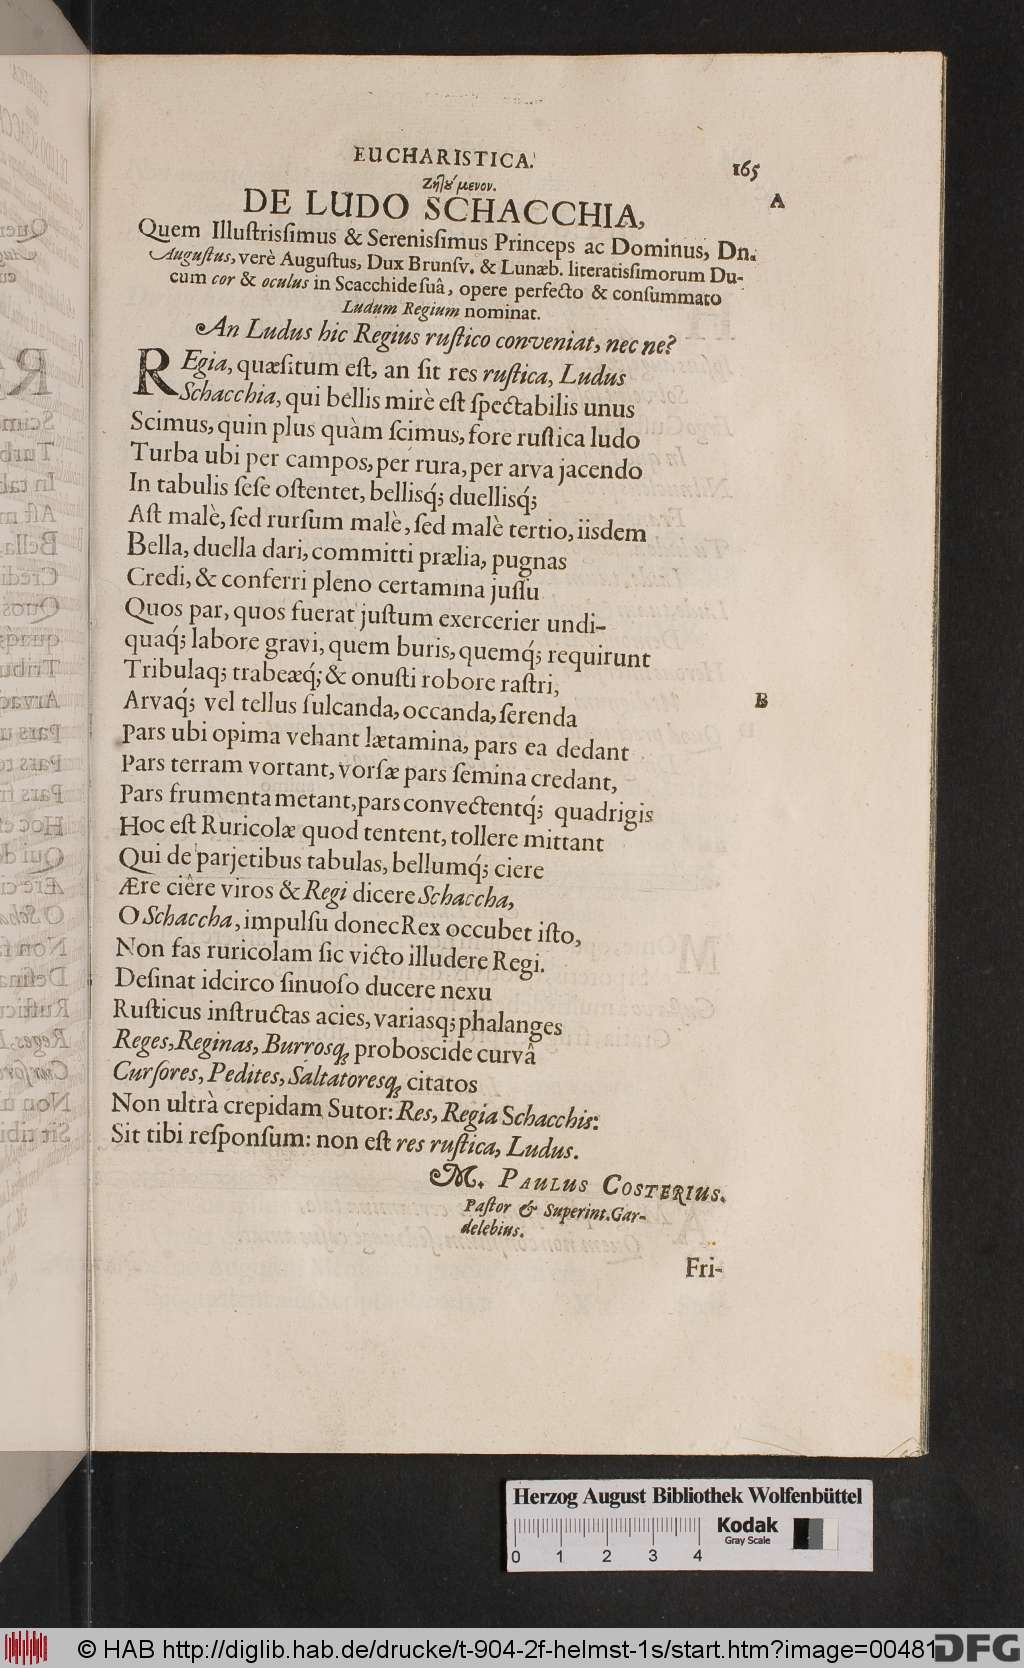 EUCHARISTICA.
165
Ζηλȣ́μενον.
A
DE LUDO SCHACCHIA,
Quem Illuſtrisſimus & Serenisſimus Princeps ac Dominus, Dn.
Auguſtus, verè Auguſtus, Dux Brunſv. & Lunæb. literatisſimorum Du-
cum cor & oculus in Scacchide ſuâ, opere perfecto & conſummato
Ludum Regium nominat.
An Ludus hic Regius ruſtico conveniat, nec ne?
REgia, quæſitum eſt, an ſit res ruſtica, Ludus
Schacchia, qui bellis mirè eſt ſpectabilis unus
Scimus, quin plus quàm ſcimus, fore ruſtica ludo
Turba ubi per campos, per rura, per arva jacendo
In tabulis ſeſe oſtentet, bellisq́; duellisq́;
Aſt malè, ſed rurſum malè, ſed malè tertio, iisdem
Bella, duella dari, committi prælia, pugnas
Credi, & conferri pleno certamina juſſu
Quos par, quos fuerat juſtum exercerier undi-
quaq́; labore gravi, quem buris, quemq́; requirunt
Tribulaq; trabeæq́; & onuſti robore raſtri,
Arvaq́; vel tellus ſulcanda, occanda, ſerenda
B
Pars ubi opima vehant lætamina, pars ea dedant
Pars terram vortant, vorſæ pars ſemina credant,
Pars frumenta metant, pars convectentq́; quadrigis
Hoc eſt Ruricolæ quod tentent, tollere mittant
Qui de parjetibus tabulas, bellumq́; ciere
Ære ciêre viros & Regi dicere Schaccha,
O Schaccha, impulſu donec Rex occubet iſto,
Non fas ruricolam ſic victo illudere Regi.
Deſinat idcirco ſinuoſo ducere nexu
Ruſticus inſtructas acies, variasq; phalanges
Reges, Reginas, Burrosq; proboscide curvâ
Curſores, Pedites, Saltatoresq; citatos
Non ultrà crepidam Sutor: Res, Regia Schacchis:
Sit tibi reſponſum: non eſt res ruſtica, Ludus.
M. PAULUS COSTERIUS.
Paſtor & Superint. Gar-
delebius.
Fri-
Herzog August Bibliothek Wolfenbüttel
Kodak
Gray Scale
0 1 2 3 4
© HAB http://diglib.hab.de/drucke/t-904-2f-helmst-1s/start.htm?image=00481
DFG